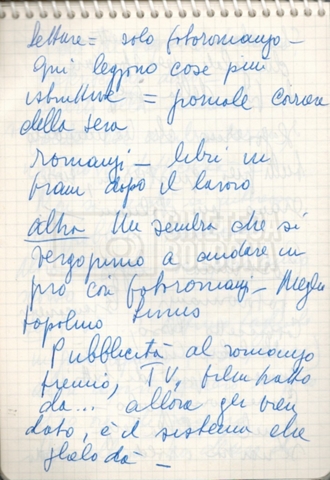 Letture = solo fotoromanzo -
Qui leggono cose più
istruttive = giornale Corriere
della sera
romanzi - libri in
tram dopo il lavoro
altra Mi sembra che si
vergognino a andare in
giro coi fotoromanzi - Meglio
topolino
Pubblicità al romanzo
premio, TV, film tratto
da... allora gli vien
dato, è il sistema che
glielo dà -